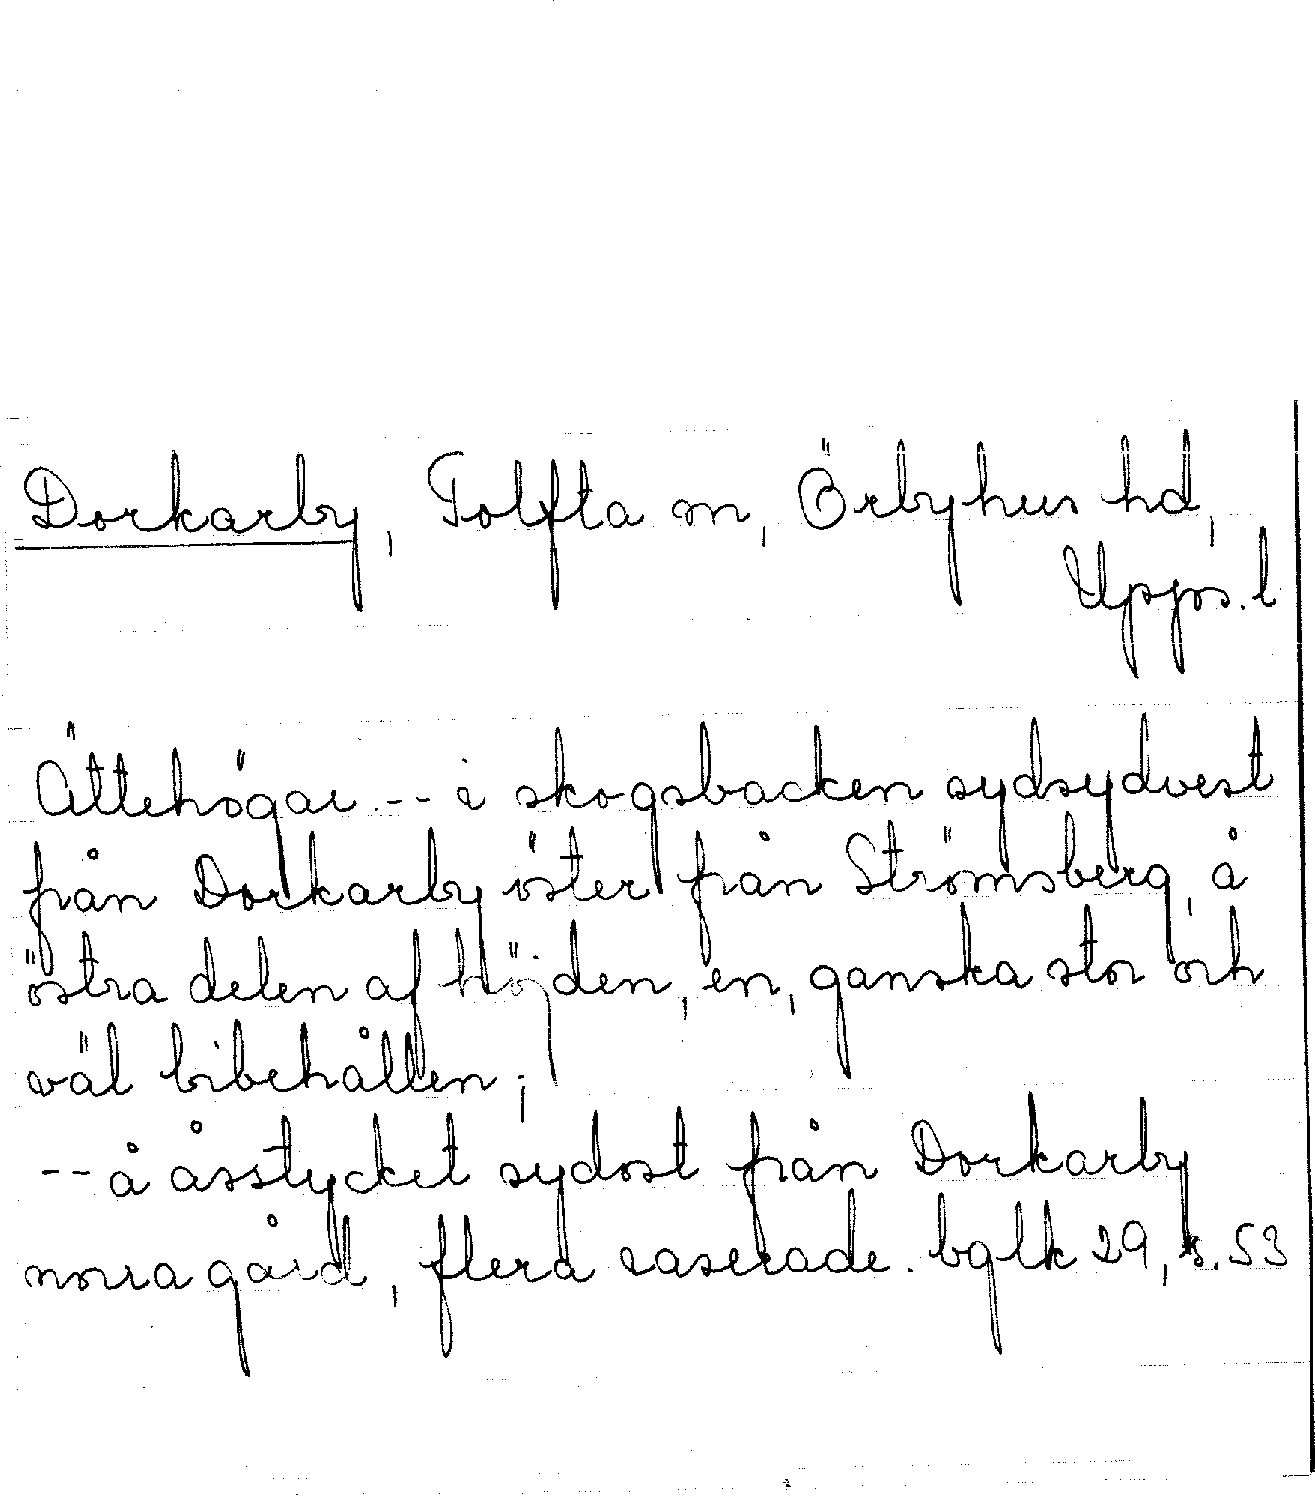 Dorkarby, Tolfta sn, Örbyhus hd,
Upps. l
Ättehögar -- i skogsbacken sydsydvest
från Dorkarby öster från Strömsberg, å
östra delen af höjden, en, ganska stor och
väl bibehållen;
-- å åsstycket sydost från Dorkarby
norra gård, flera raserade. bglk 29, s. 53